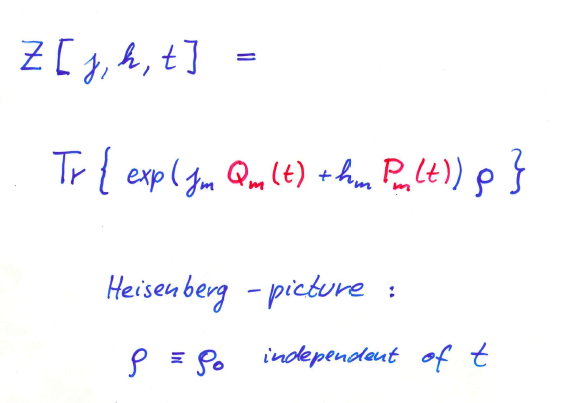 Z [ j, h, t ] =
Tr { exp ( j_m Q_m (t) + h_m P_m (t) ) ρ }
Heisenberg - picture :
ρ ≡ ρ₀ independent of t